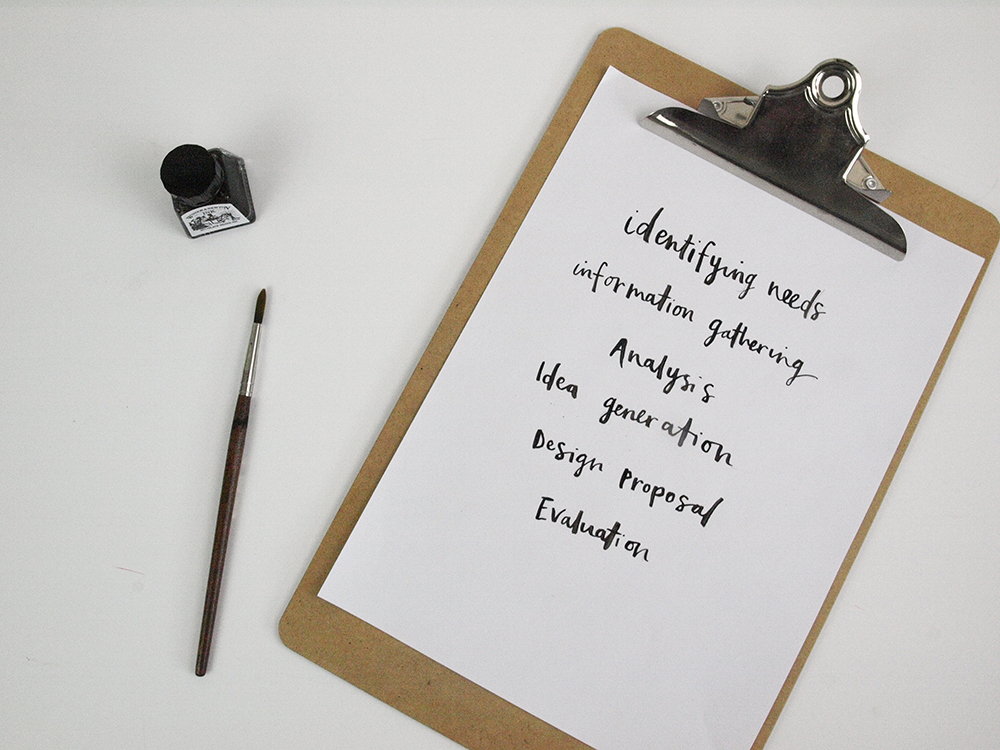 identifying needs
information gathering
Analysis
Idea generation
Design Proposal
Evaluation
INK